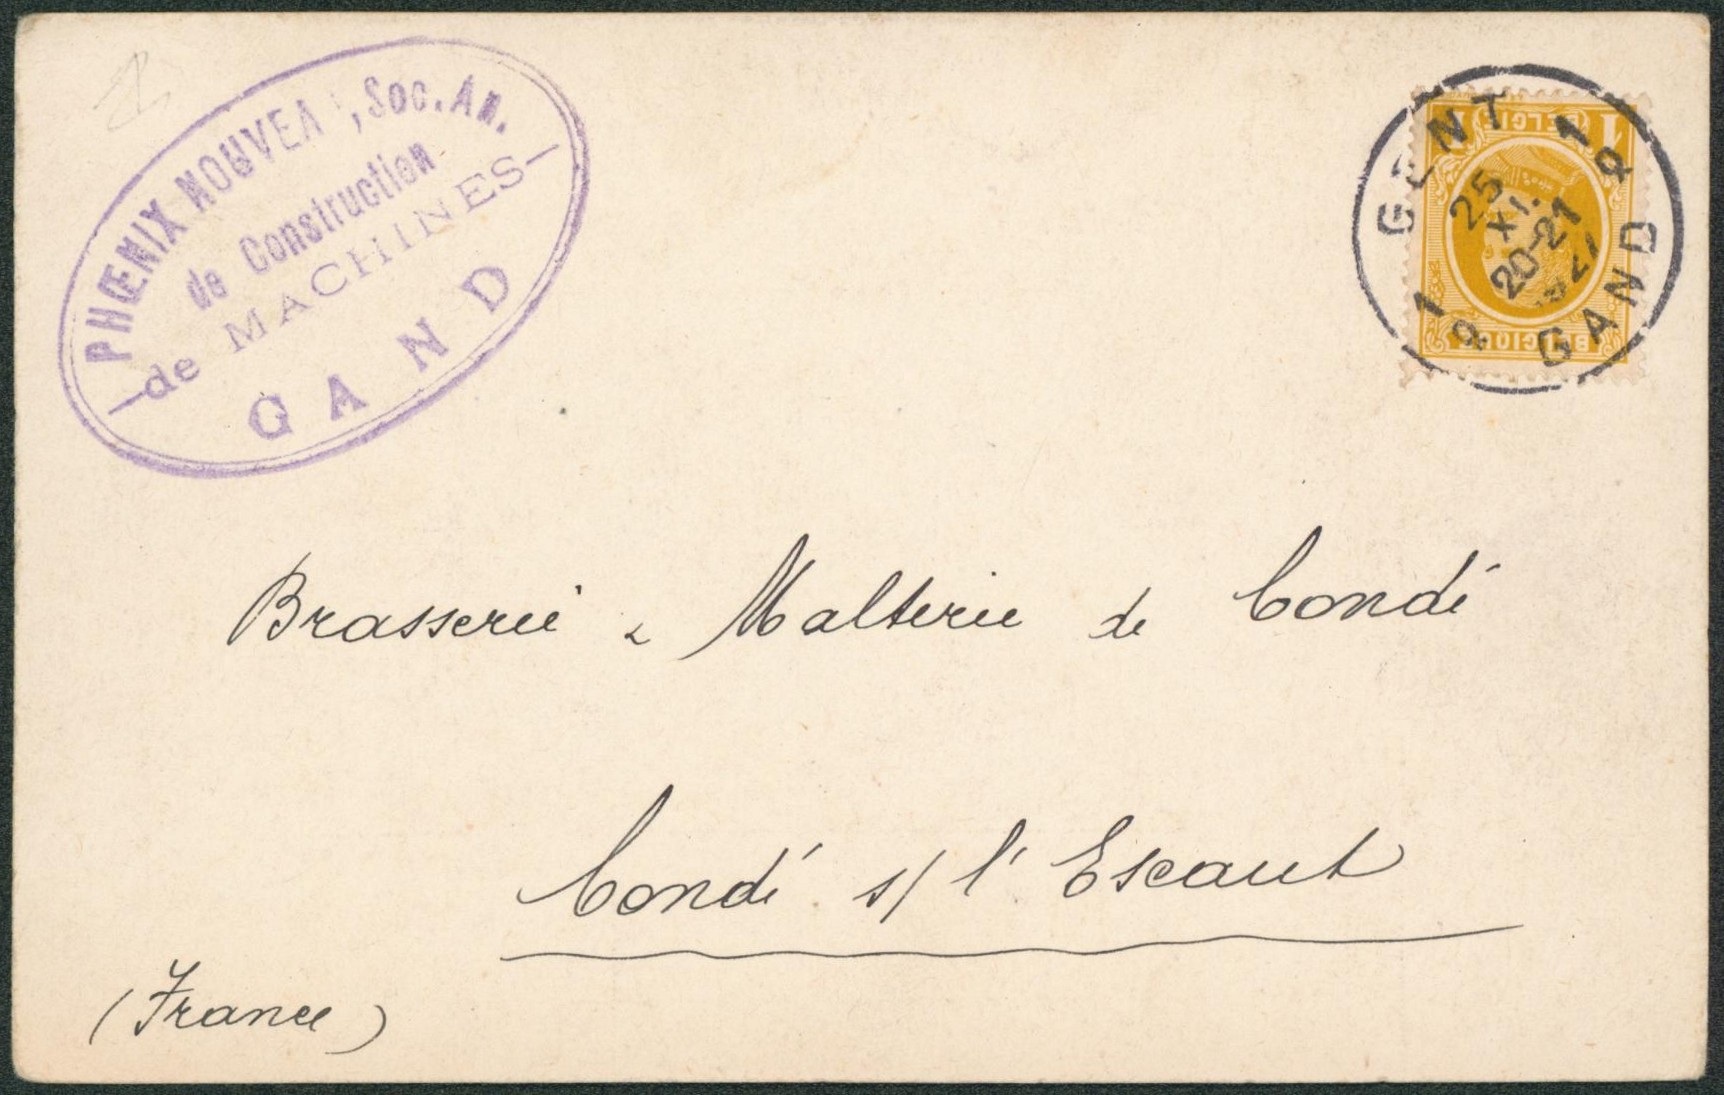 PHŒNIX NOUVEA , Soc. An.
de Construction
de MACHINES
GAND
GENT 1
25
XI.
20-21
1927
1 GAND
1 BELGIË
BELGIQUE
Brasserie & Malterie de Condé
Condé s/ l'Escaut
(France)